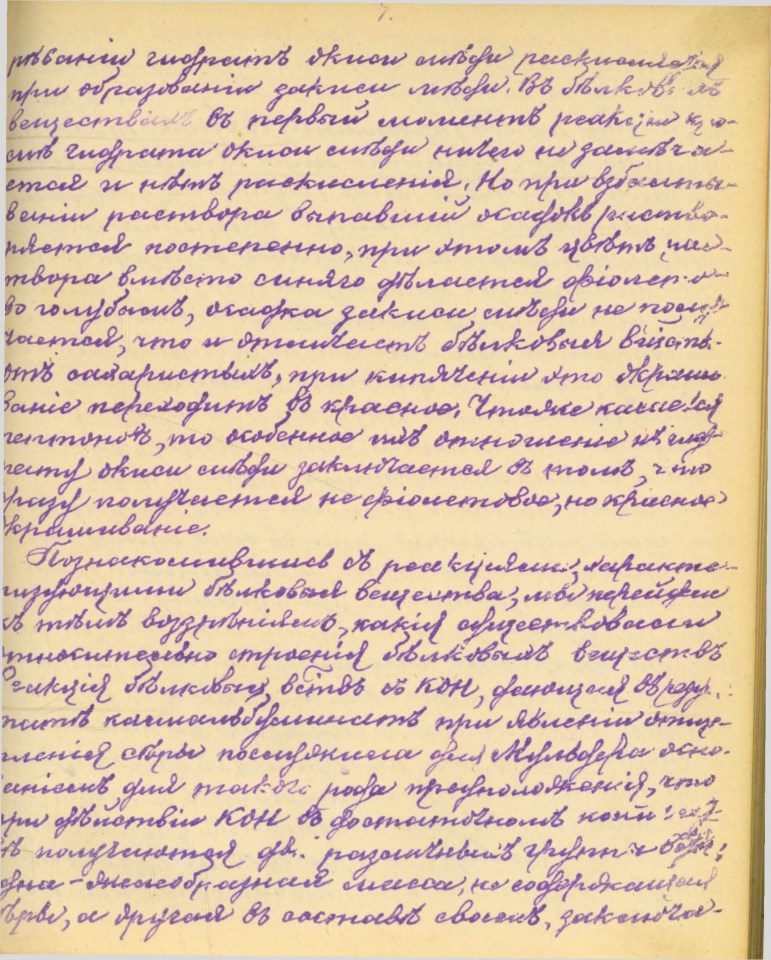 7.
рѣваніи гидратъ окиси мѣди раскисляется
при образованіи закиси мѣди. Въ бѣлковыхъ
веществахъ въ первый моментъ реакціи кро-
мѣ гидрата окиси мѣди ничего не замѣча-
ется и нѣтъ раскисленія. Но при взбалты-
ваніи раствора выпавшій осадокъ раство-
ряется постепенно, при этомъ цвѣтъ рас-
твора вмѣсто синяго дѣлается фіолето-
во голубымъ, осадка закиси мѣди не полу-
чается, что и отличаетъ бѣлковыя
отъ сахаристыхъ, при кипяченіи это окраши-
ваніе переходитъ въ красное. Чтоже касается
пептоновъ, то особенное ихъ отношеніе къ гид-
рату окиси мѣди заключается въ томъ, что
сразу получается не фіолетовое, но красное
окрашиваніе.
Познакомившись съ реакціями, характе-
ризующими бѣлковыя вещества, мы перейдемъ
къ тѣмъ воззрѣніямъ, какія существовали
относительно строенія бѣлковыхъ веществъ
Реакція бѣлковыхъ вствъ съ КОН, дающая въ резу
татѣ калиальбуминатъ при явленіи отщеп-
пленія сѣры послужила для Мульдера осно-
ваніемъ для такого рода предположенія, что
при дѣйствіи КОН въ достаточномъ
получаются двѣ различныхъ группы
одна - желеобразная масса, не содержащая
сѣры, а другая въ составѣ своемъ, заключа-